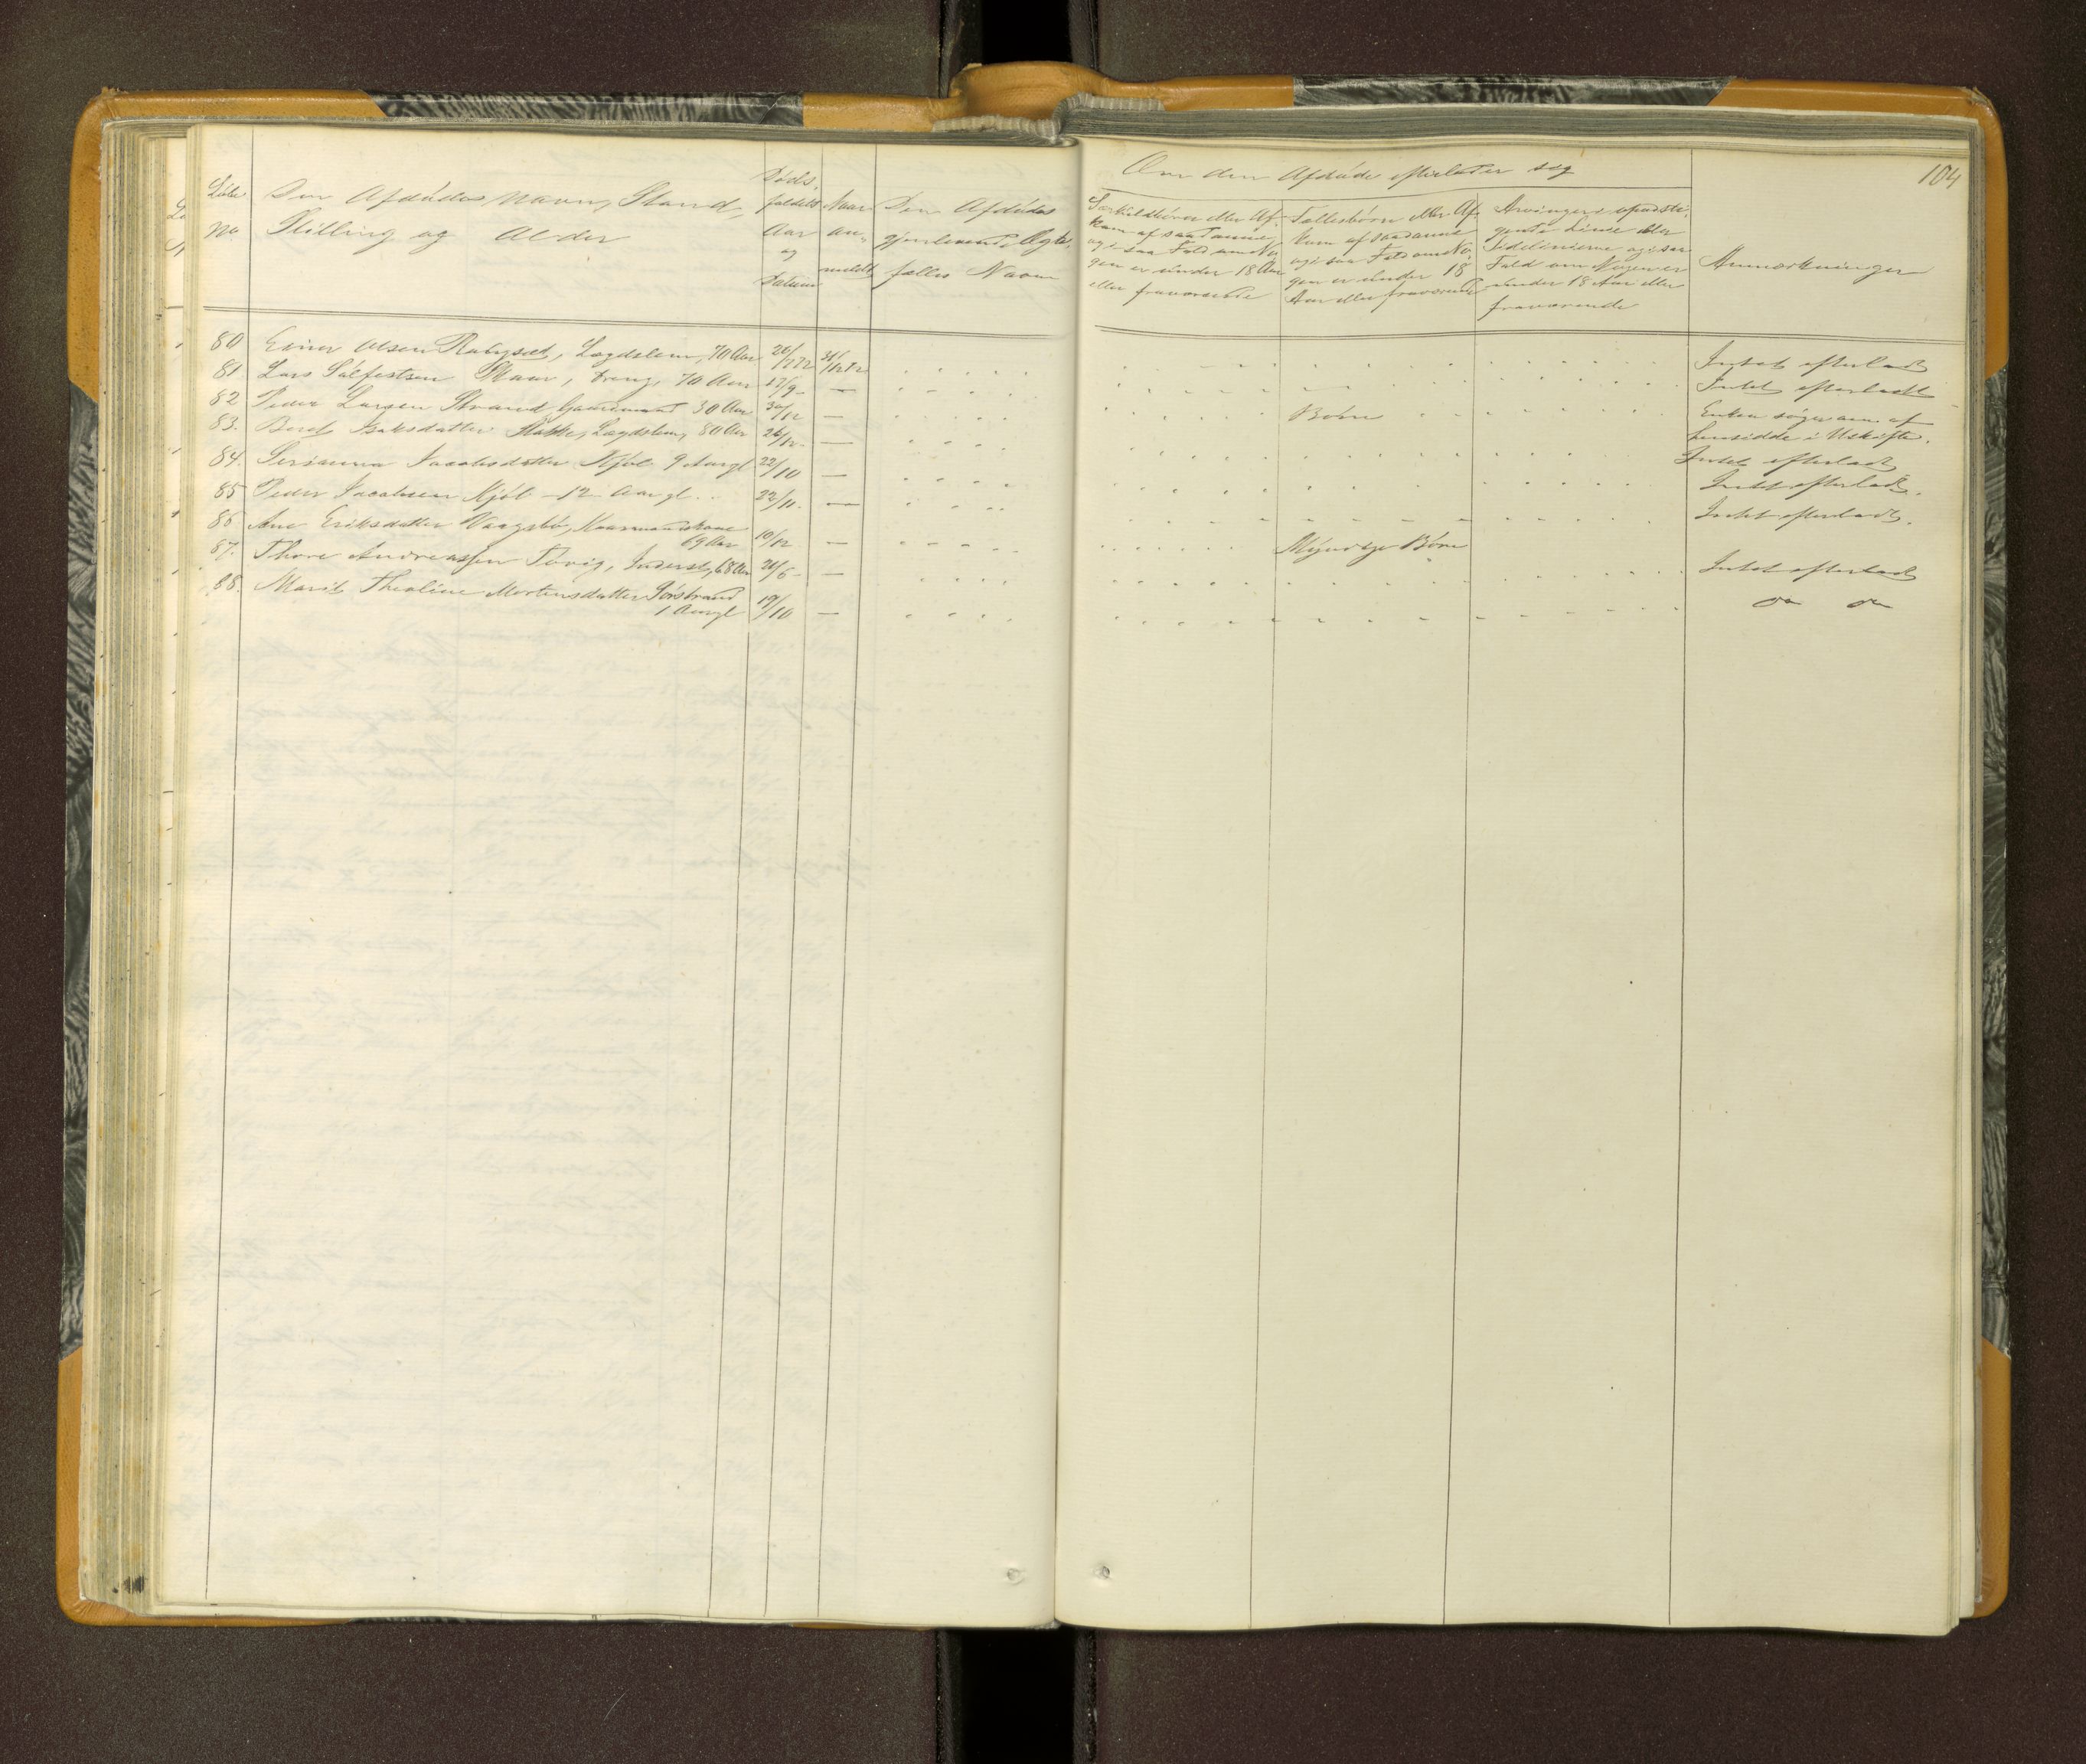 104
Løbe
No
Den Afdødes Navn, Stand,
Stilling og Alder
Døds-
faldets
Aar
og
Datum
Naar
an-
meldt
Den Afdødes
gjenlevende Ægte-
fælles Navn
Om den Afdøde efterlader sig
Særkuldbørn eller Af-
kom af saadanne
og i saa Fald om No-
gen er under 18 Aar
eller fraværende
Fællesbørn eller Af-
kom af saadanne
og i saa Fald om No-
gen er under 18
Aar eller fraværende
Arvinger i opadsti-
gende Linie eller
Sidelinierne og i saa
Fald om Nogen er
under 18 Aar eller
fraværende
Anmærkninger
80 Einer Olsen Rabygsæd, Lægdslem, 70 Aar 26/12 72 31/12 72 Intet efterladt
81. Lars Salfestsen Skaar, Dreng, 70 Aar 17/9 - — Intet efterladt
82 Peder Larsen Strand Gaardmand 30 Aar 30/12 — Børn Enken søger om at
hensidde i Uskifte.
83. Berit Isaksdatter Slakke, Lægdslem, 80 Aar 26/12 - — Intet efterladt
84. Serianna Jacobsdatter Kjøl 9 Aargl 22/10 — Intet efterladt.
85 Peder Jacobsen Kjøl - 12 Aar gl. 22/11. — Intet efterladt.
86 Ane Eriksdatter Vaagsbø, Kaarmandskone
69 Aar 10/12 — Myndige Børn
87. Thore Andreassen Tøvig, Inderst, 68 Aar 26/6 - — Intet efterladt
88. Marit Thealine Mortensdatter Jørstrand
1 Aargl 19/10 — do do